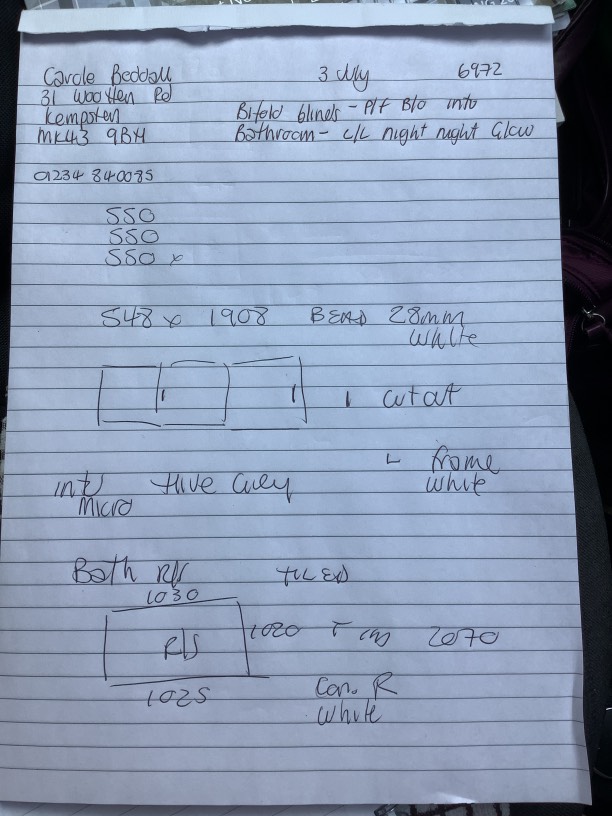 Carole Beddall 3 July 6972
31 Wootten Rd
Kempston Bifold blinds - P/F B/O into
MK43 9BH Bathroom - c/c night night Glow
01234 840085
550
550
550 x
548 x 1908 BEAD 28mm
White
1 cut out
L frame
intu Hive Grey White
Micro
Bath R/S TILED
1030
R/S 1020 T 2070
1025 Con. R
White